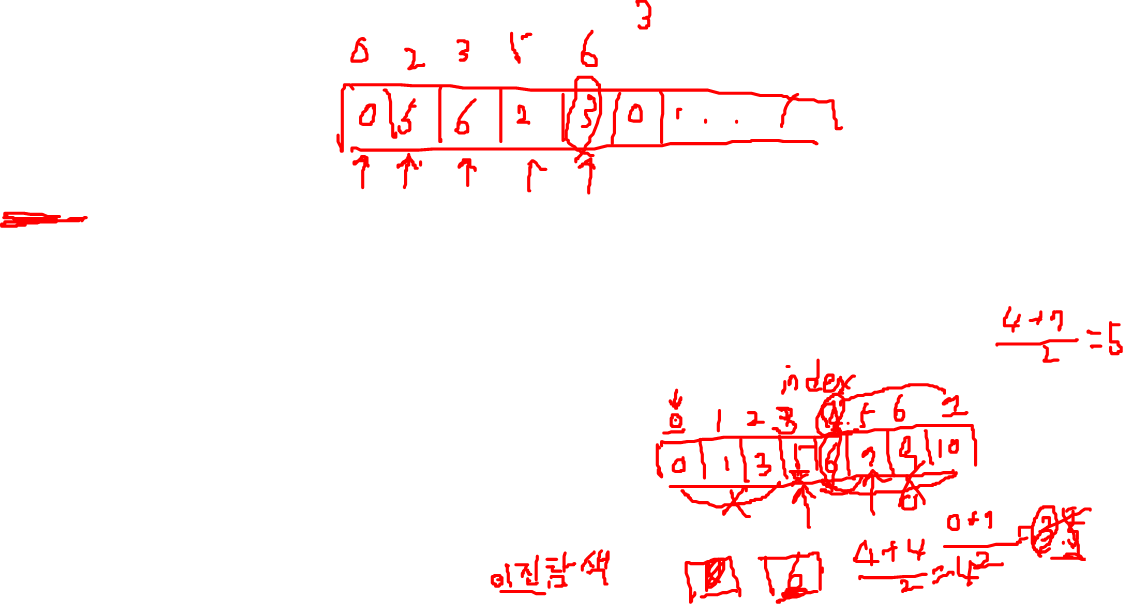 3
0 2 3 5 6
0 5 6 2 3 0 . . .
4+7
2
=5
index
0 1 2 3 4 5 6 7
0 1 3 5 6 7 10
이진탐색
6
4+4
2
=4
0+7
2